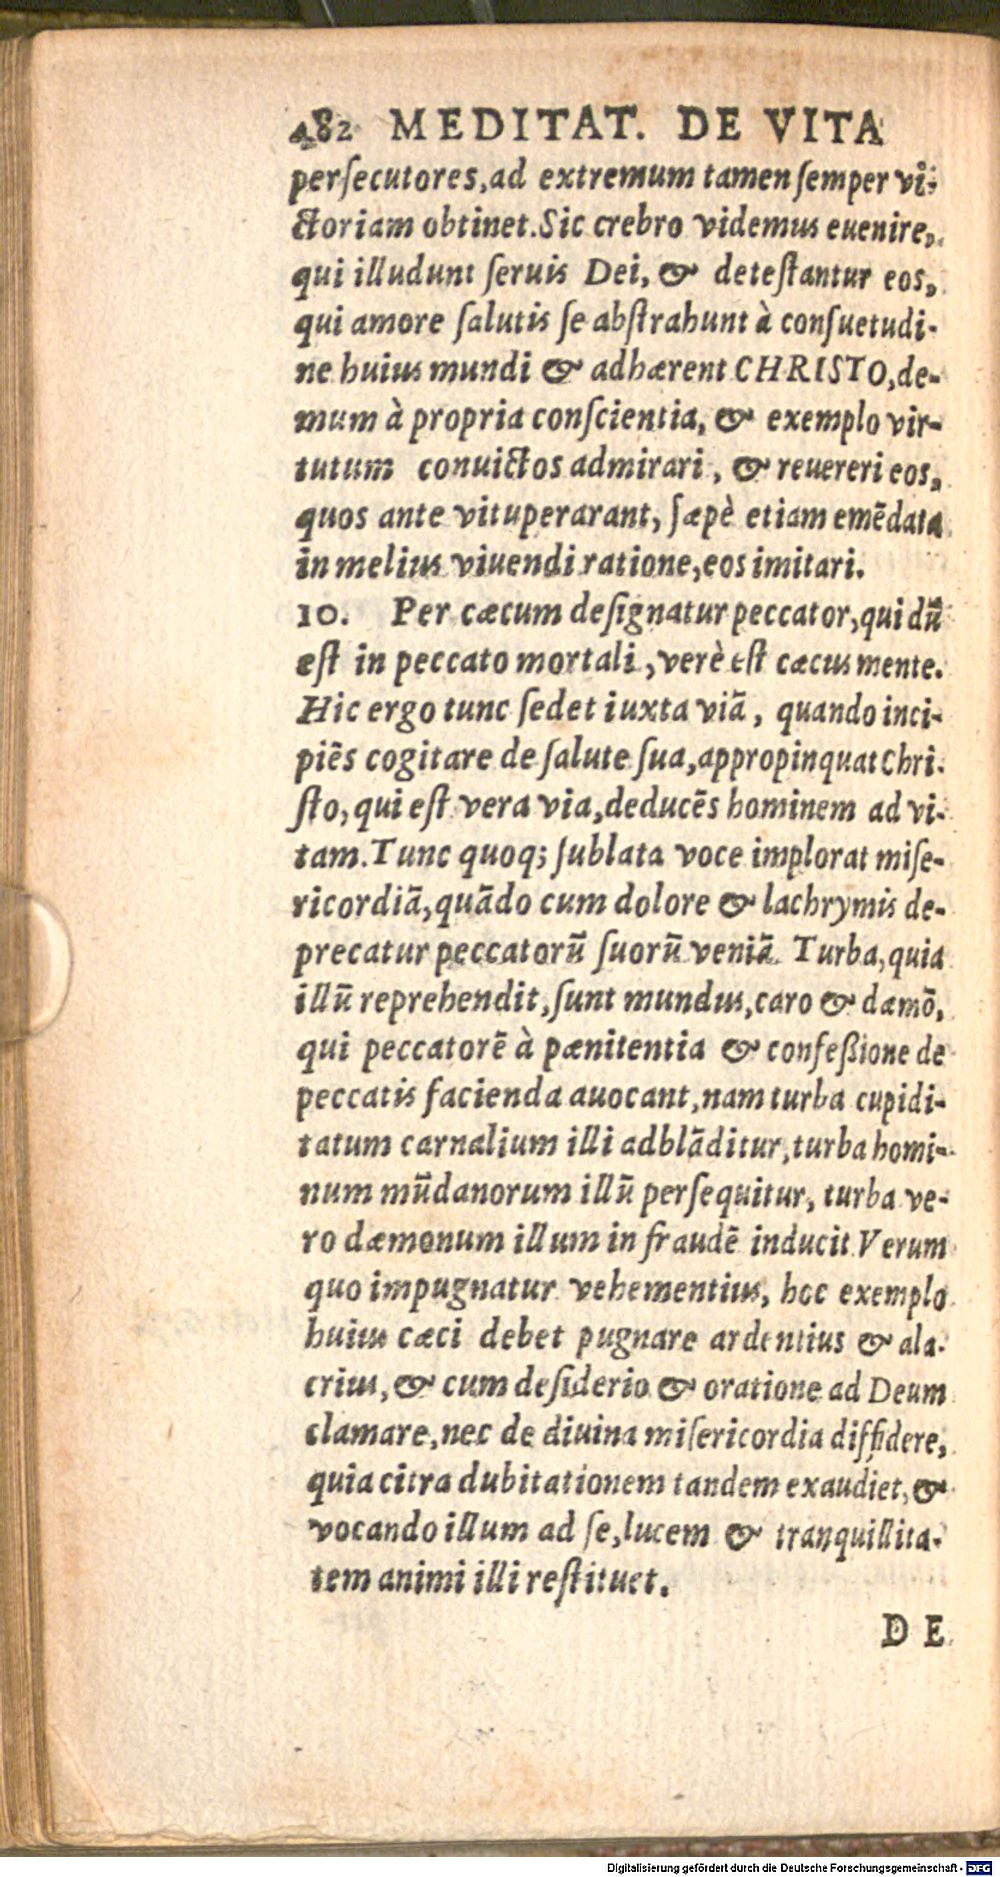 482 MEDITAT. DE VITA
perſecutores, ad extremum tamen ſemper vi-
ctoriam obtinet. Sic crebro videmus euenire,
qui illudunt ſeruis Dei, & deteſtantur eos,
qui amore ſalutis ſe abſtrahunt à conſuetudi-
ne huius mundi & adhærent CHRISTO, de-
mum à propria conſcientia, & exemplo vir-
tutum conuictos admirari, & reuereri eos,
quos ante vituperarant, ſæpè etiam emẽdata
in melius viuendi ratione, eos imitari.
10. Per cæcum deſignatur peccator, qui dũ
eſt in peccato mortali, verè eſt cæcus mente.
Hic ergo tunc ſedet iuxta viã, quando inci-
piẽs cogitare de ſalute ſua, appropinquat Chri-
ſto, qui eſt vera via, deducẽs hominem ad vi-
tam. Tunc quoq; ſublata voce implorat miſe-
ricordiã, quãdo cum dolore & lachrymis de-
precatur peccatorũ ſuorũ veniã. Turba, quia
illũ reprehendit, ſunt mundus, caro & dæmõ,
qui peccatorẽ à pænitentia & confeßione de
peccatis facienda auocant, nam turba cupidi-
tatum carnalium illi adblãditur, turba homi-
num mũdanorum illũ perſequitur, turba ve-
ro dæmonum illum in fraudẽ inducit Verum
quo impugnatur vehementius, hoc exemplo
huius cæci debet pugnare ardentius & ala-
crius, & cum deſiderio & oratione ad Deum
clamare, nec de diuina miſericordia diffidere,
quia citra dubitationem tandem exaudiet, &
vocando illum ad ſe, lucem & tranquillita-
tem animi illi reſtituet.
DE
Digitalisierung gefördert durch die Deutsche Forschungsgemeinschaft - DFG